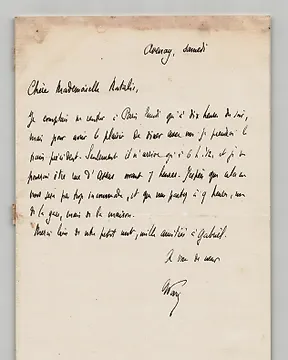 Avenay, Samedi
Chère Mademoiselle Natalie,
Je comptais ne rentrer à Paris lundi qu'à dix heures du soir,
mais pour avoir le plaisir de dîner avec vous je prendrai le
train précédent. Seulement il n'arrive qu'à 6 h. 1/2, et je ne
pourrai être rue d'Assas avant 7 heures. J'espère que cela ne
vous sera pas trop incommode, et que nous partons à 9 heures, non
de la gare, mais de la maison.
Merci bien de votre petit mot, mille amitiés à Gabriel.
A vous de cœur